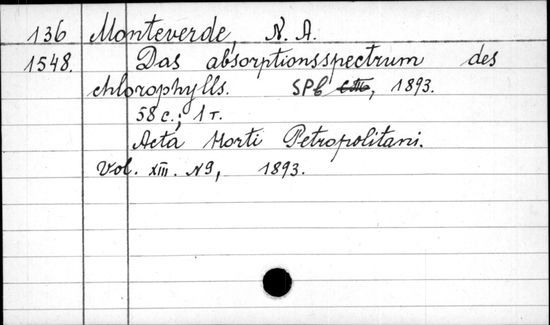 136 Monteverde, N. A.
1548. Das absorptionsspectrum des
chlorophylls. SPb, 1893.
58 c.; 1 т.
Acta Horti Petropolitani.
Vol. XIII. № 9, 1893.